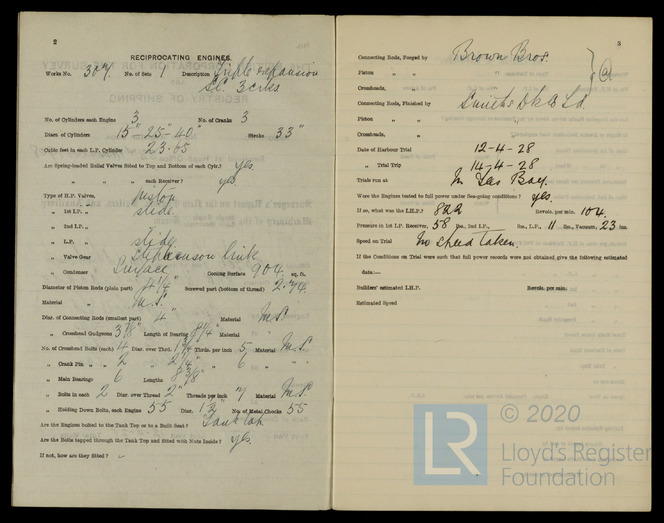 2
RECIPROCATING ENGINES.
Works No. 307. No. of Sets 1 Description Triple expansion
S.C. 3 crks
No. of Cylinders each Engine 3 No. of Cranks 3
Diars. of Cylinders 15" - 25" - 40" Stroke 33"
Cubic feet in each L.P. Cylinder 23.65
Are Spring-loaded Relief Valves fitted to Top and Bottom of each Cylr.? yes
„ „ „ each Receiver? yes
Type of H.P. Valves, piston
„ 1st I.P. „ slide.
„ 2nd I.P. „
„ L.P. „ slide
„ Valve Gear Stephenson link
„ Condenser Surface Cooling Surface 904 sq. ft.
Diameter of Piston Rods (plain part) 4¼" Screwed part (bottom of thread) 2.74
Material „ M.S.
Diar. of Connecting Rods (smallest part) 4" Material M.S.
„ Crosshead Gudgeons 3⅞" Length of Bearing Material
No. of Crosshead Bolts (each) 4 Diar. over Thrd. Thrds. per inch 5 Material M.S.
„ Crank Pin „ „ 2 „ 2¼" „ 6 „ „
„ Main Bearings 6 Lengths
„ Bolts in each 2 Diar. over Thread 2" Threads per inch Material M.S.
„ Holding Down Bolts, each Engine 55 Diar. No. of Metal Chocks 55
Are the Engines bolted to the Tank Top or to a Built Seat? Tank top
Are the Bolts tapped through the Tank Top and fitted with Nuts Inside? yes.
If not, how are they fitted?
3
Connecting Rods, Forged by Brown Bros.
Piston „ „
Crossheads, „
Connecting Rods, Finished by Smiths Dk Co Ld
Piston „ „
Crossheads, „
Date of Harbour Trial 12-4-28
„ Trial Trip 14-4-28
Trials run at In Bay.
Were the Engines tested to full power under Sea-going conditions? yes.
If so, what was the I.H.P.? Revols. per min. 104.
Pressure in 1st I.P. Receiver, 58 lbs., 2nd I.P., lbs., L.P., 11 lbs., Vacuum, 23 ins.
Speed on Trial No speed taken.
If the Conditions on Trial were such that full power records were not obtained give the following estimated
data:—
Builders' estimated I.H.P. Revols. per min.
Estimated Speed
LR © 2020
Lloyd's Register
Foundation